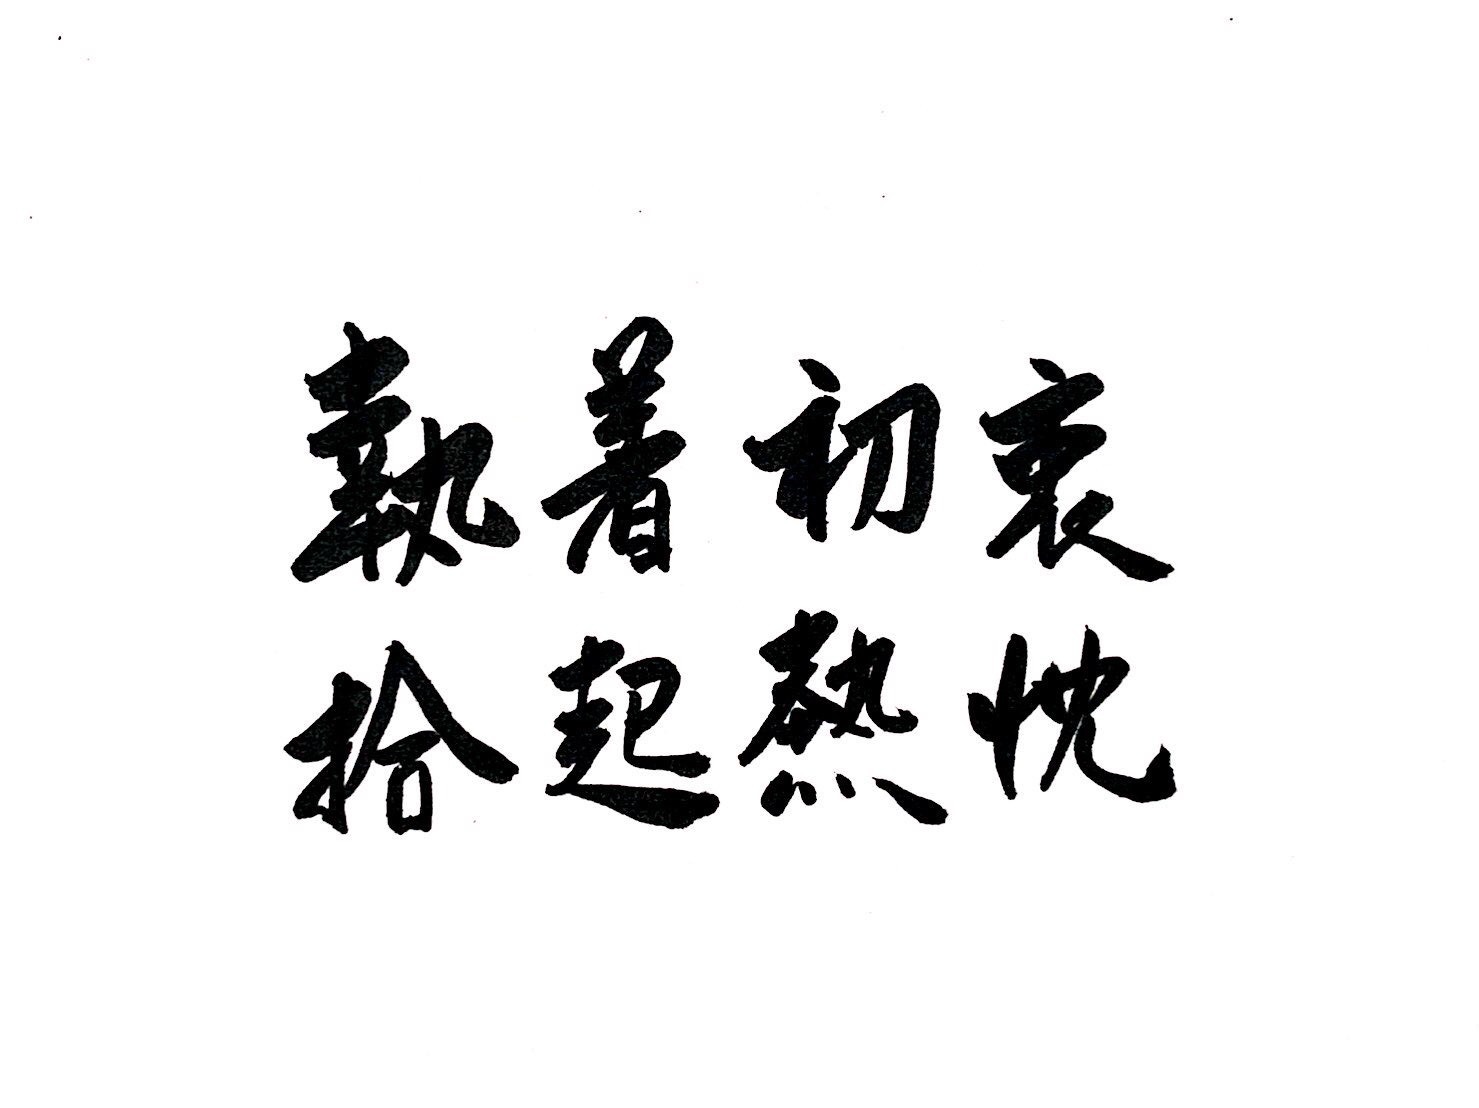 執着初衷
拾起熱忱